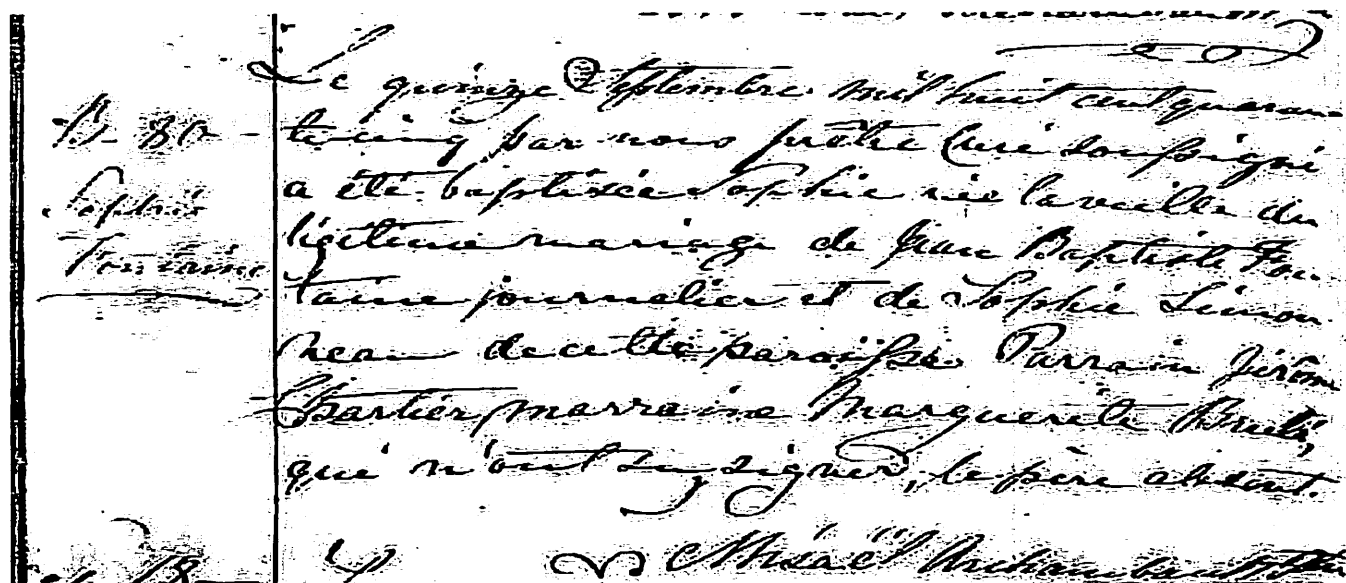 B. 80
Sophie
Fontaine
Le quinze Septembre mil huit cent quaran-
te cinq par nous prêtre Curé soussigné
a été baptisée Sophie née la veille du
légitime mariage de Jean Baptiste Fon-
taine journalier et de Sophie Limon
neau de cette paroisse Parrain Jérôme
Chartier, marraine Marguerite Brulé,
qui n'ont su signer, le père absent.
Misaël Archambault Ptre